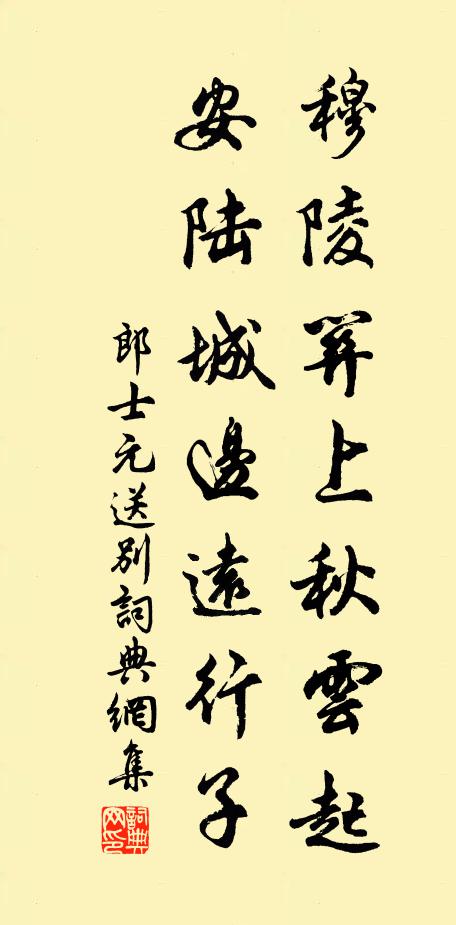 穆陵關上秋雲起
安陸城邊遠行子
郎士元送別詞典網集
詞典网印